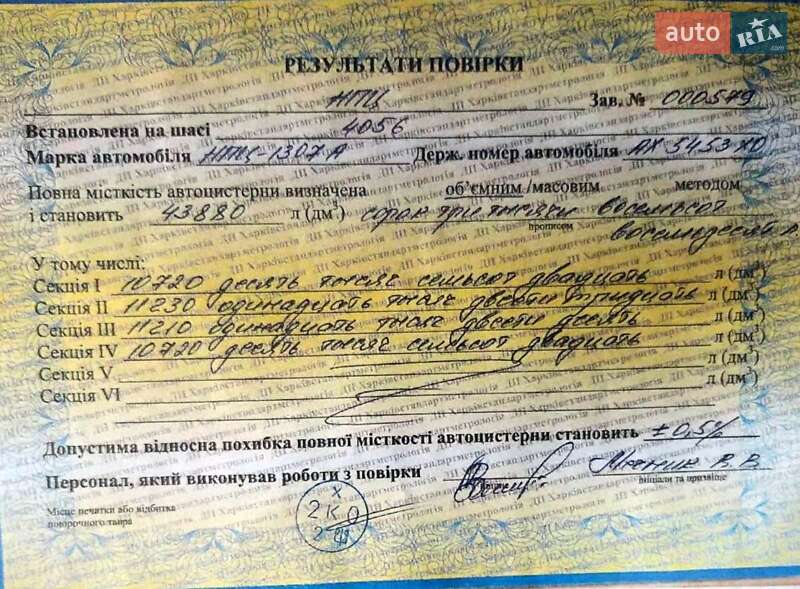 auto RIA.com
РЕЗУЛЬТАТИ ПОВІРКИ
НПЦ Зав. № 000579
Встановлена на шасі 4056
Марка автомобіля НПЦ-1307А Держ. номер автомобіля АХ 5453 ХО
Повна місткість автоцистерни визначена об’ємним /масовим методом
і становить 43880 л (дм³) сорок три тысячи восемьсот
прописом
восемьдесят
У тому числі:
Секція I 10720 десять тысяч семьсот двадцать л (дм³)
Секція II 11230 одинадцать тысяч двести тридцать л (дм³)
Секція III 11210 одинадцать тысяч двести десять л (дм³)
Секція IV 10720 десять тысяч семьсот двадцать л (дм³)
Секція V л (дм³)
Секція VI л (дм³)
Допустима відносна похибка повної місткості автоцистерни становить ±0,5%
Персонал, який виконував роботи з повірки В. В.
ініціали та прізвище
Місце печатки або відбитка
повірочного тавра
Х
2КД
ДП Харківстандартметрологія